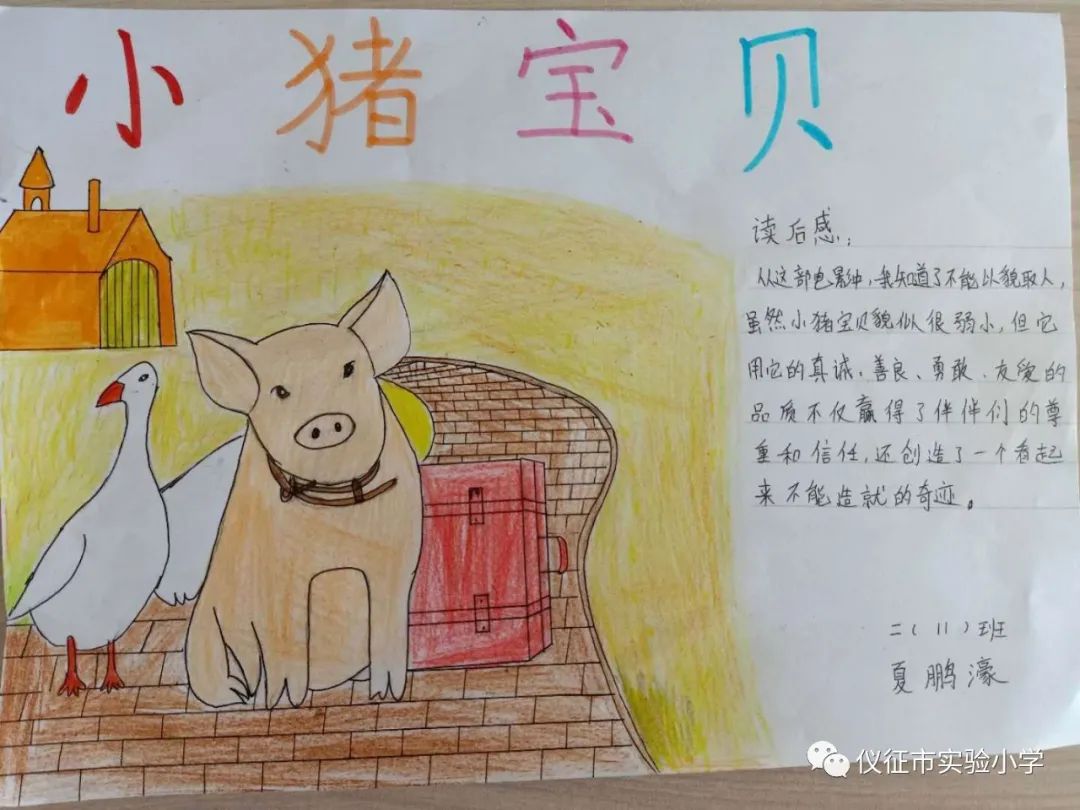 小猪宝贝
读后感：
从这部电影中，我知道了不能以貌取人，
虽然小猪宝贝貌似很弱小，但它
用它的真诚、善良、勇敢、友爱的
品质不仅赢得了伴伴们的尊
重和信任，还创造了一个看起
来不能造就的奇迹。
二（11）班
夏鹏濠
仪征市实验小学